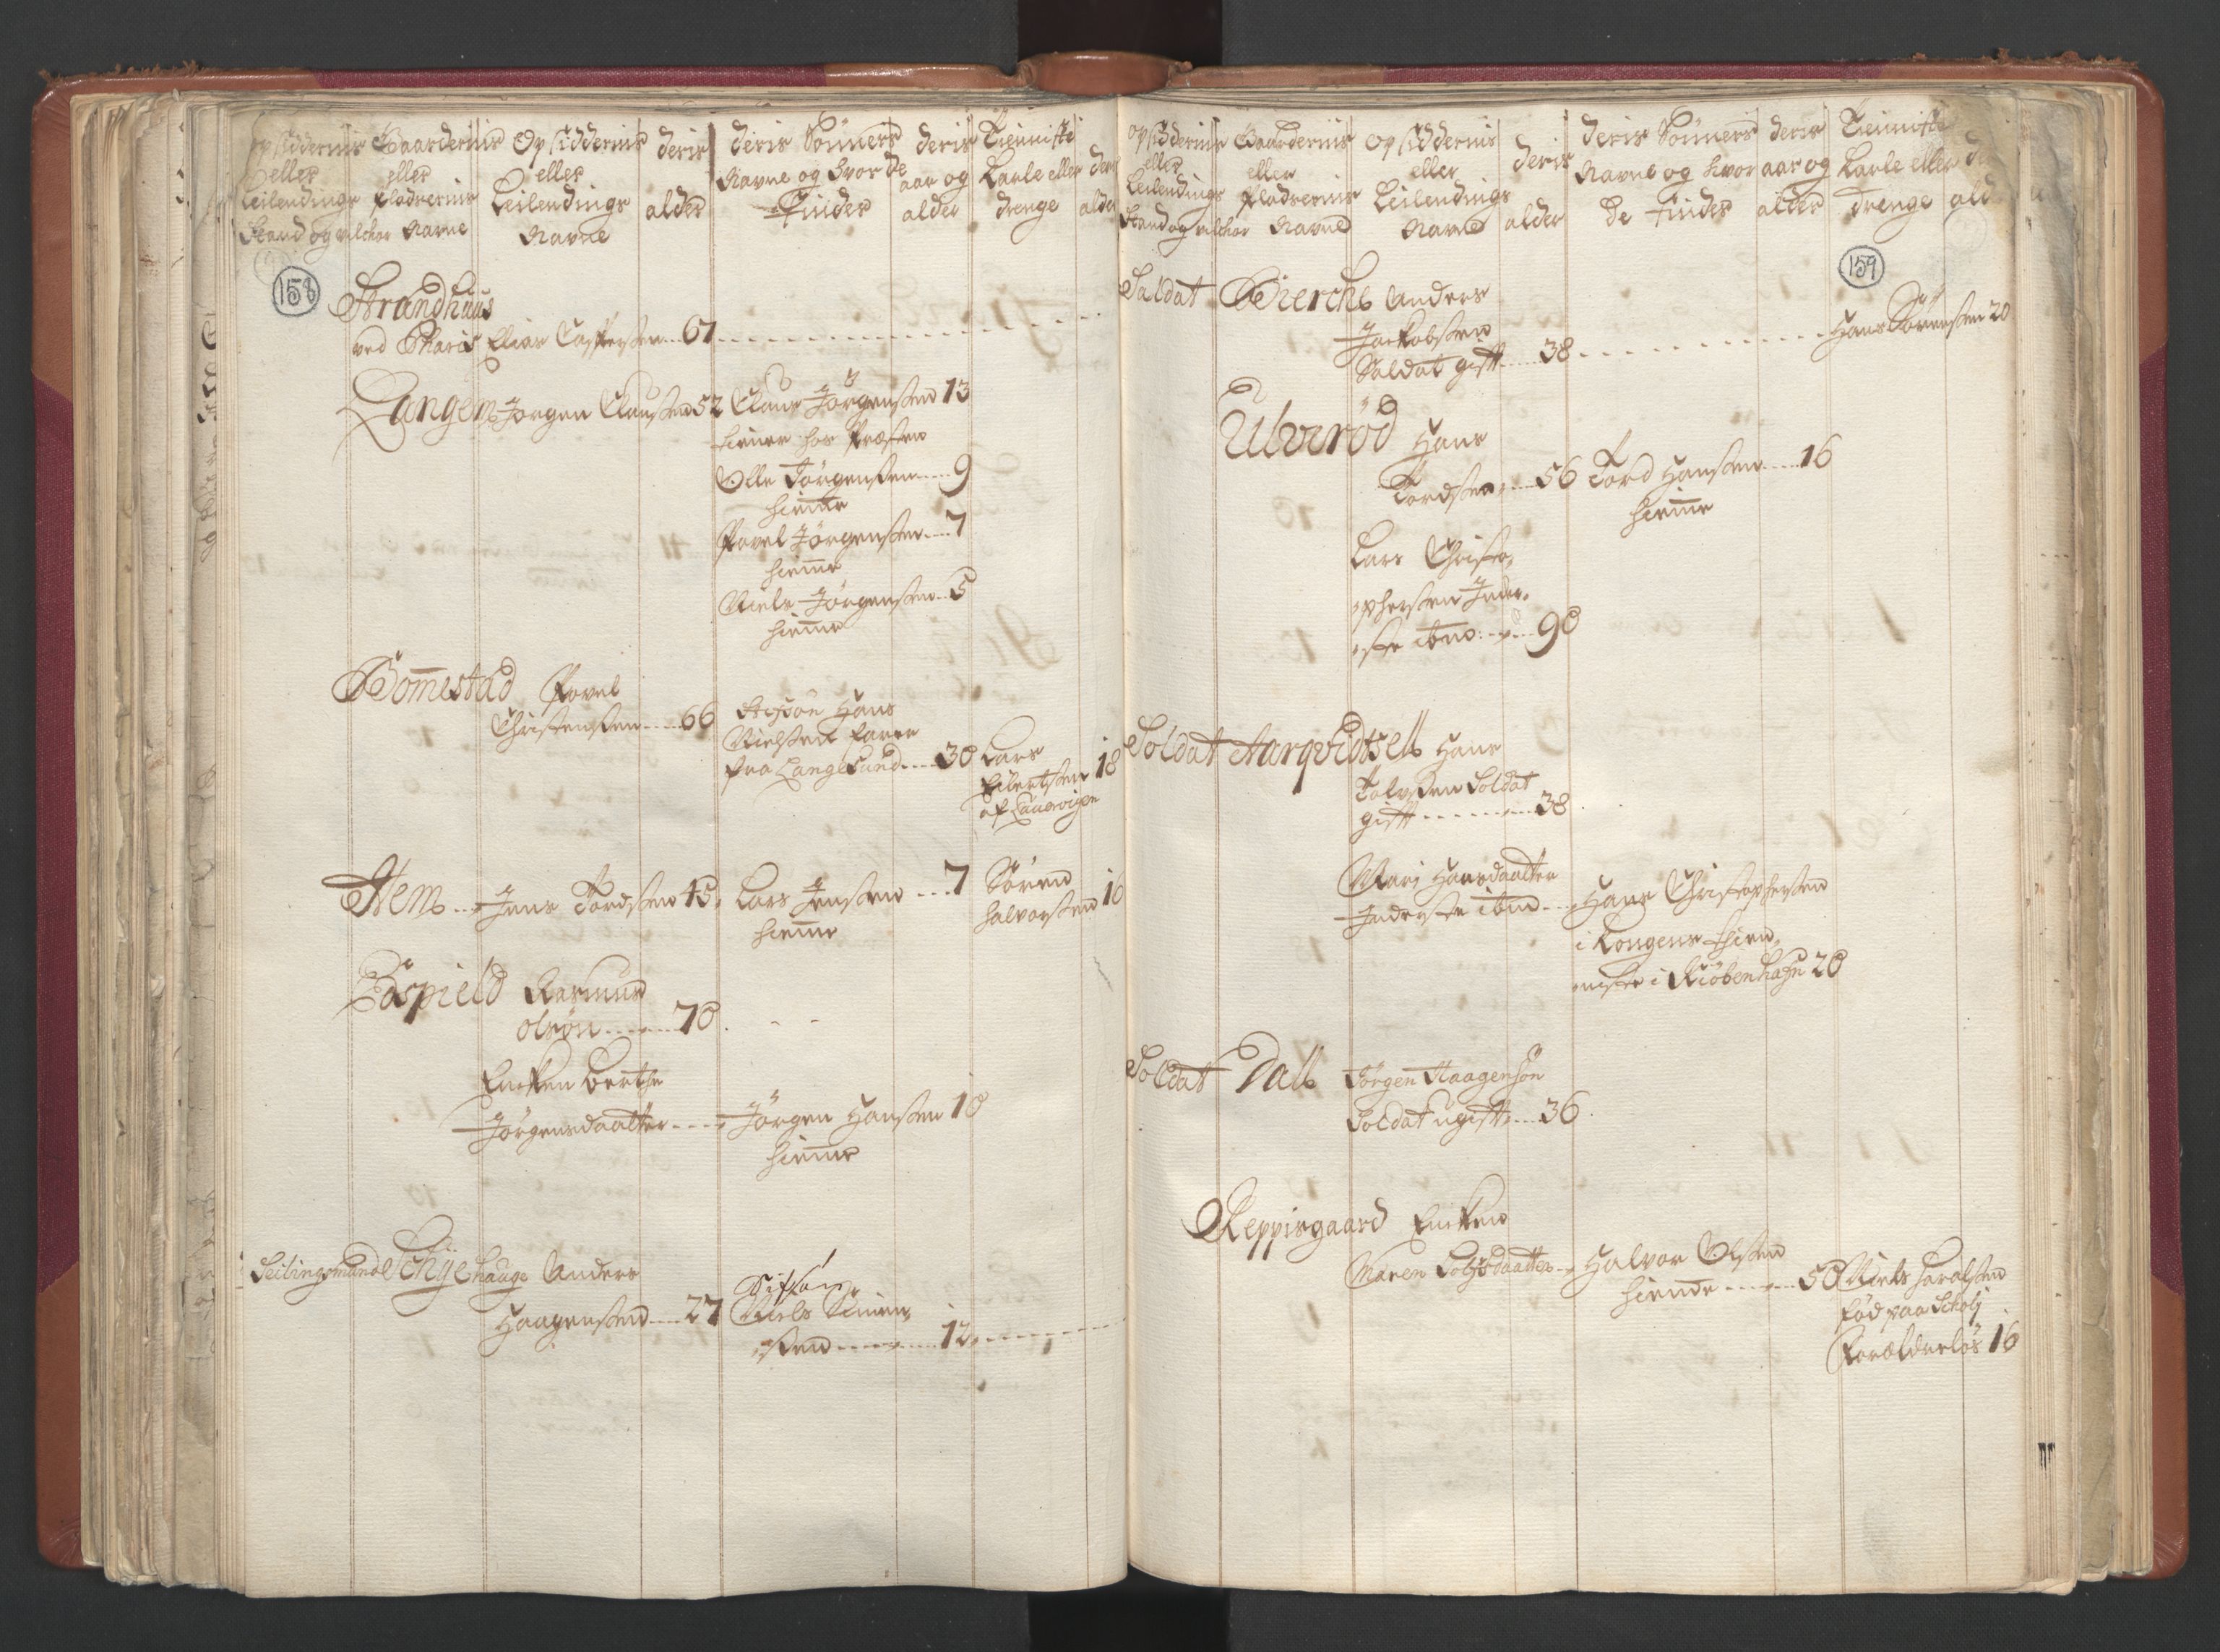 opsiddernis
eller
Leilendings
stand og vilchor
Gaardernis
eller
pladzernis
Navne
Opsiddernis
eller
Leilendings
Navne
deris
alder
deris Sönners
Navne og hvor de
findes
deris
aar og
alder
Tienniste
Karle eller
drenge
deris
alder
158
Strandhuus
ved Elias Casperßen 67
Langem Jorgen Claußen 52 Claus Jörgenßen 13
tiener hos Præsten
Olle Jörgenßen 9
hiemme
Povel Jörgenßen 7
hiemme
Niels Jörgenßen 5
hiemme
Bom̅estad Povel
Christenßen 66
Stifsön Hans
Nielßen farer
fra Langesund 30
Lars
Eilertßen 18
af Laurvigen
Hem Jens Tordßen 45 Lars Jenßen 7
hiemme
Sören
halvorßen 16
Rasmus
olsön 70
Enken Berthe
Jörgensdaatter Jörgen Hanßen 10
hiemme
Leilingsmand Schiehauge Anders
Haagenßen 27
Stifsön
Niels Simen
ßen 12
opsiddernis
eller
Leilendings
stand og vilchor
Gaardernis
eller
pladzernis
Navne
opsiddernis
eller
Leilendings
Navne
deris
alder
deris Sönners
Navne og hvor
de findes
deris
aar og
alder
Tienniste
Karle eller
drenge
159
Saldat Bierche Anders
Jackobßen
Saldat gift 38
Hans Sörenßen 20
Ulveröd Hans
Tordßen 56 Tord Hanßen 16
hiemme
Lars Christo
pherßen Inder
ste ibid: 90
Soldat Aarqvidtsell Hans
Talvßen Soldat
gift 38
Mari Hansdaatter
Inderste ibid Hans Christopherßen
i Kongens tien
niste i Kiöbenhafn 20
Soldat Dall Jörgen Haagensön
Soldat ugift 36
Reppisgaard Enken
Maren daatter Halvor Olßen
hiemme 50
Niels haralßen
föd paa Scholj
Forældrelös 16